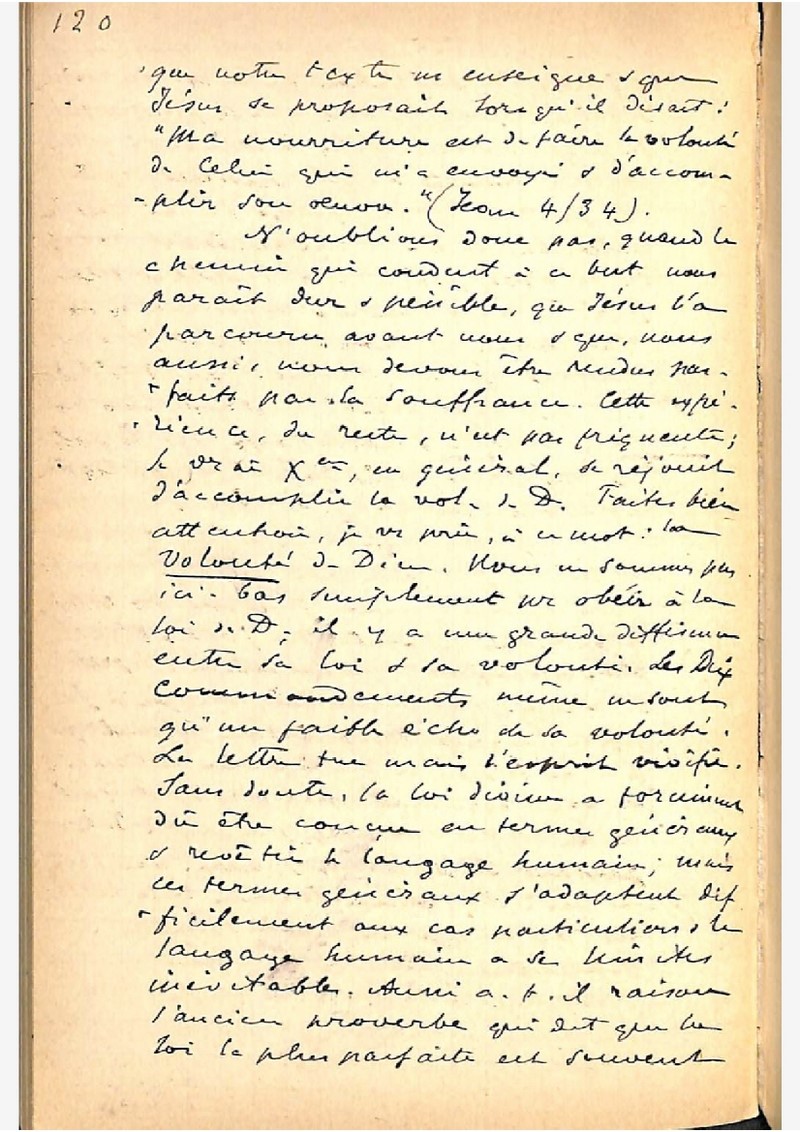 120
que notre texte ns enseigne & que
Jésus se proposait lorsqu'il disait :
"Ma nourriture est de faire la volonté
de Celui qui m'a envoyé & d'accom-
-plir son œuvre." (Jean 4/34).
N'oublions donc pas, quand le
chemin qui conduit à ce but nous
paraît dur & pénible, que Jésus l'a
parcouru avant nous & que, nous
aussi, nous devons être rendus par-
-faits par la souffrance. Cette expé-
-rience, du reste, n'est pas fréquente ;
le vrai Xen, en général, se réjouit
d'accomplir la vol. de D. Faites bien
attention, je vs prie, à ce mot : la
Volonté de Dieu. Nous ne sommes pas
ici-bas simplement pr obéir à la
loi de D ; il y a une grande différence
entre sa loi & sa volonté. Les Dix
Commandements même ne sont
qu'un faible écho de sa volonté.
La lettre tue mais l'esprit vivifie.
Sans doute, la loi divine a forcément
dû être conçue en termes généraux
& revêtir le langage humain ; mais
ces termes généraux s'adaptent dif
-ficilement aux cas particuliers & le
langage humain a ses limites
inévitables. Aussi a-t-il raison
l'ancien proverbe qui dit que la
loi la plus parfaite est souvent